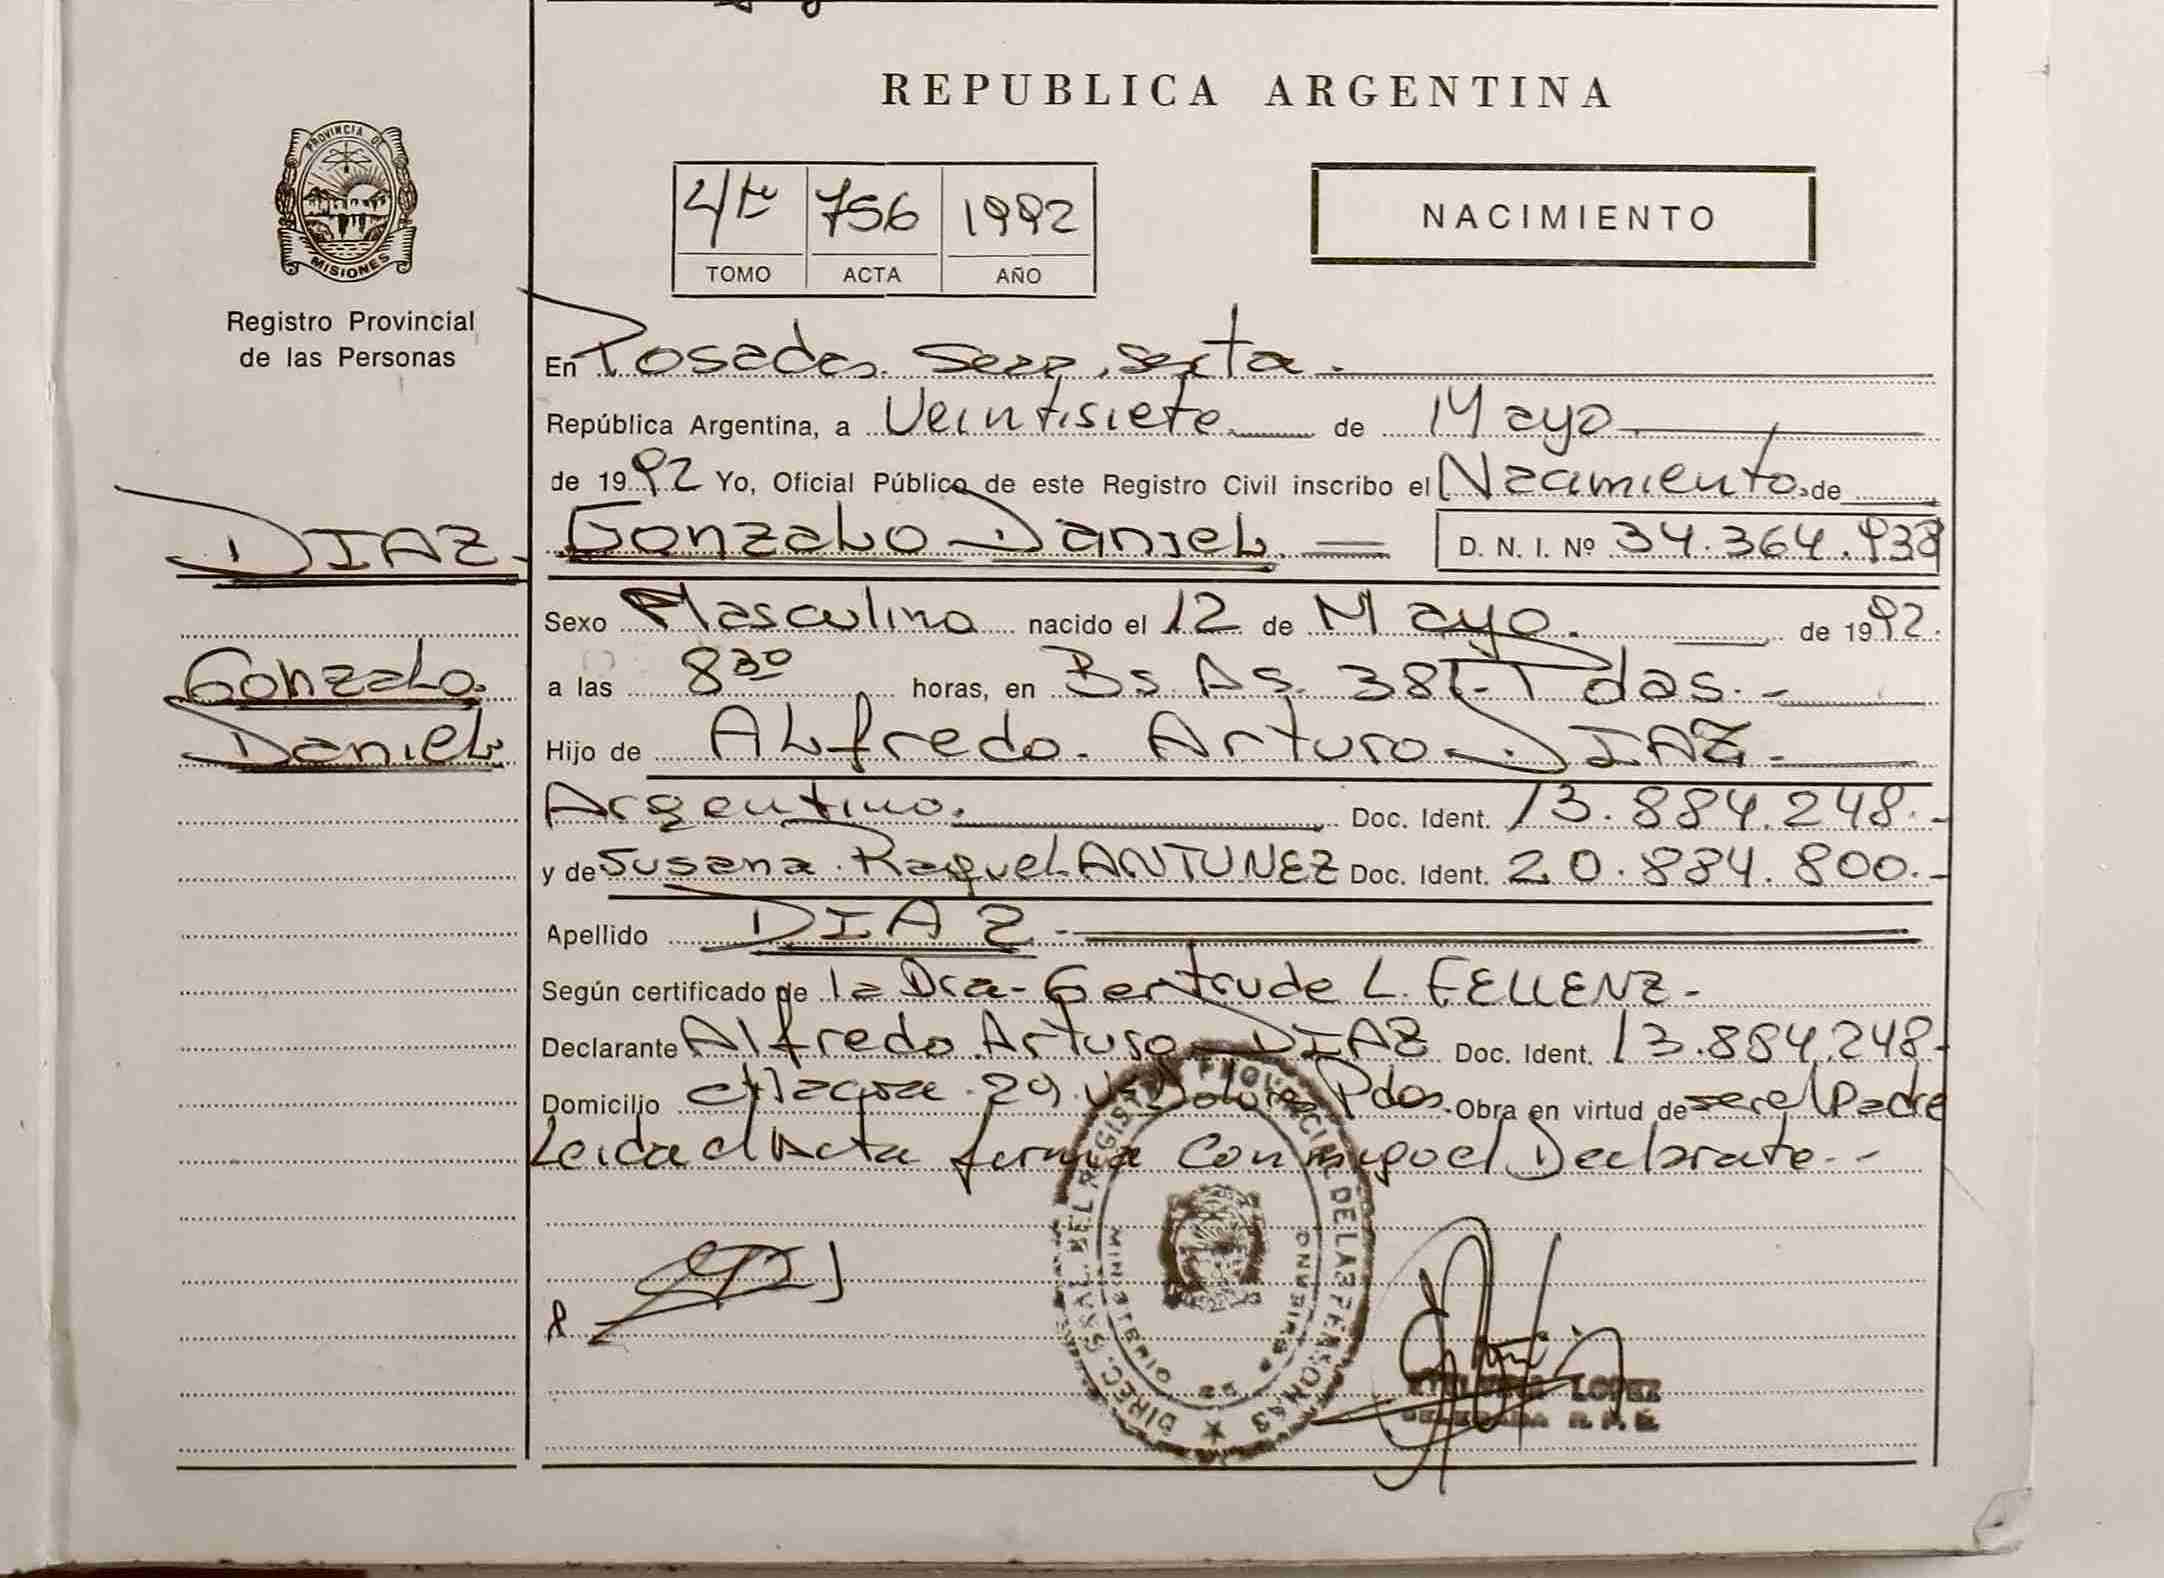 REPUBLICA ARGENTINA
PROVINCIA DE
MISIONES
Registro Provincial
de las Personas
4to 756 1992
TOMO ACTA AÑO
NACIMIENTO
En Posadas. Secc. sexta.
República Argentina, a Veintisiete de Mayo
de 1992 Yo, Oficial Público de este Registro Civil inscribo el Nacimiento de
DIAZ
Gonzalo
Daniel
Gonzalo Daniel D. N. I. Nº 34.364.938
Sexo Masculino nacido el 12 de Mayo. de 1992.
a las 8 30 horas, en Bs. As. 381. Pdas.-
Hijo de Alfredo. Arturo DIAZ-
Argentino. Doc. Ident. 13.884.248.-
y de Susana Raquel ANTUNEZ Doc. Ident. 20.884.800.-
Apellido DIAZ-
Según certificado de la Dra- Gertrude L. FELLENZ-
Declarante Alfredo Arturo DIAZ Doc. Ident. 13.884.248-
Domicilio Chacra 29 Dolores Pdas. Obra en virtud de ser el Padre
Leida el Acta firma Con migo el Declarate.-
DIREC. GRAL. DEL REGISTRO PROVINCIAL DE LAS PERSONAS
MINISTERIO DE GOBIERNO
LOPEZ
DELEGADA R. P. P.